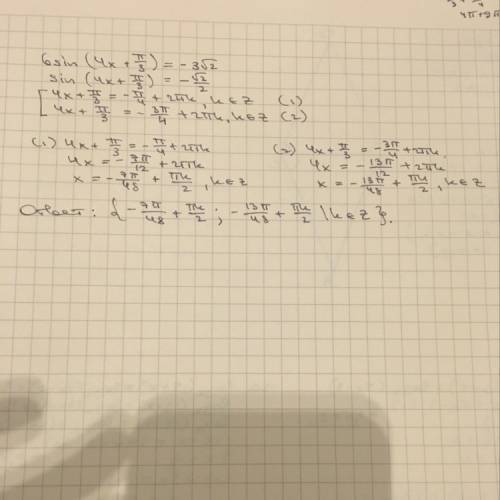 4π+9π
6sin(4x + π/3) = -3√2
sin(4x + π/3) = -√2/2
[ 4x + π/3 = -π/4 + 2πk, k∈Z (1)
4x + π/3 = -3π/4 + 2πk, k∈Z (2)
(1) 4x + π/3 = -π/4 + 2πk
4x = -7π/12 + 2πk
x = -7π/48 + πk/2, k∈Z
(2) 4x + π/3 = -3π/4 + 2πk
4x = -13π/12 + 2πk
x = -13π/48 + πk/2, k∈Z
Ответ: {-7π/48 + πk/2; -13π/48 + πk/2 | k∈Z}.